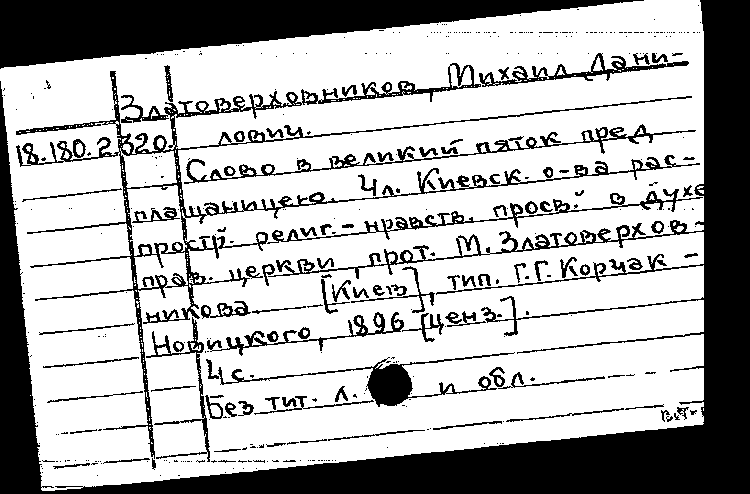 Златоверховников, Михаил Дани-
18.180.2.320. лович.
Слово в великий пяток пред
плащаницею. Чл. Киевск. о-ва рас-
простр. религ.-нравств. просв. в духе
прав. церкви, прот. М. Златоверхов-
никова. [Киев], тип. Г.Г. Корчак-
Новицкого, 1896 [ценз.].
4 с.
Без тит. л. и обл.